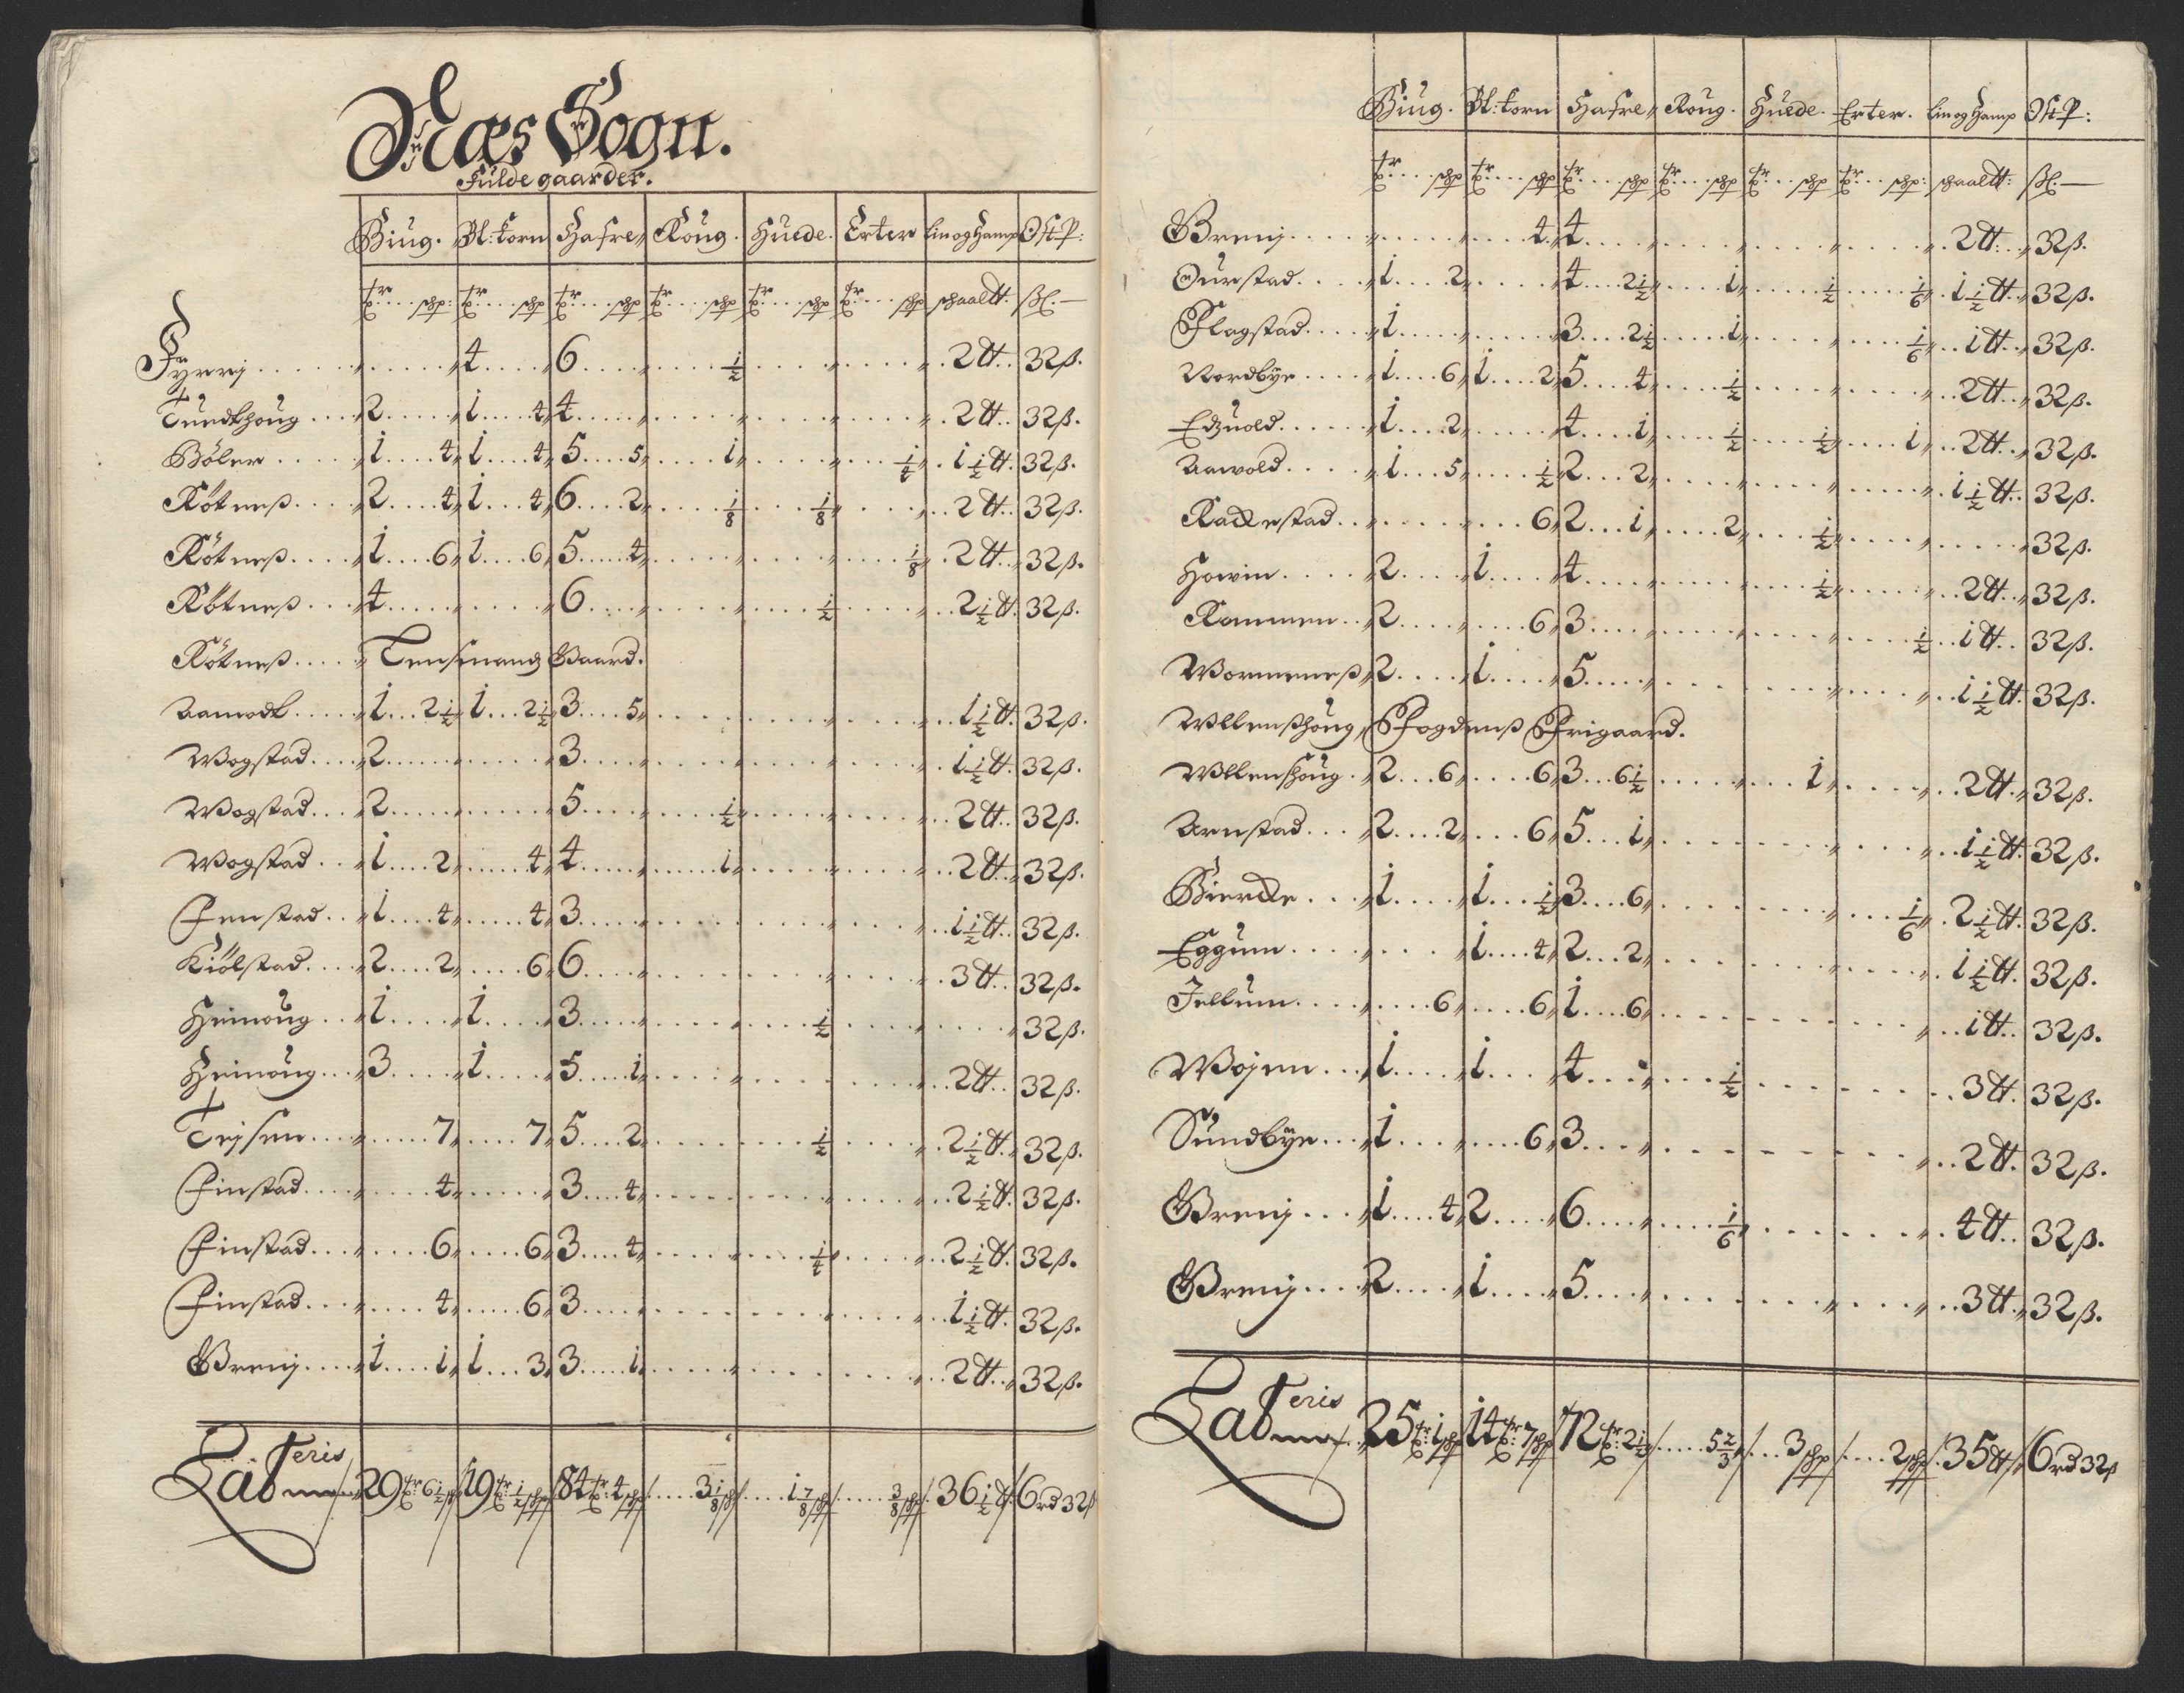 Næs Sogn.
Fulde gaarder.
Biug. Bl:korn Hafre Roug. Huede. Erter lin og Hamp Ost P:
tr schp: tr schp tr schp tr schp tr schp tr schp schaaltt: ßl.
Fyrrej 4 6 ½ 2 tt. 32 ß.
Tundthoug 2 1 4 4 2 tt. 32 ß.
Böler 1 4 1 4 5 5 1 ¼ 1½ tt. 32 ß.
Rötneß 2 4 1 4 6 2 ⅛ ⅛ 2 tt. 32 ß.
Rötneß 1 6 1 6 5 4 ⅛ 2 tt. 32 ß.
Rötneß 4 6 ½ 2½ tt. 32 ß.
Rötneß Lensmandz Gaard.
Aamodt 1 2½ 1 2½ 3 5 1½ tt. 32 ß.
Wogstad 2 3 1½ tt. 32 ß.
Wogstad 2 5 ½ 2 tt. 32 ß.
Wogstad 1 2 4 4 1 2 tt. 32 ß.
Fenstad 1 4 4 3 1½ tt. 32 ß.
Kiölstad 2 2 6 6 3 tt. 32 ß.
Heinoug 1 1 3 ½ 32 ß.
Heinoug 3 1 5 1 2 tt. 32 ß.
Tejsen 7 7 5 2 ½ 2½ tt. 32 ß.
Finstad 4 3 4 2½ tt. 32 ß.
Finstad 6 6 3 4 ¼ 2½ tt. 32 ß.
Finstad 4 6 3 1½ tt. 32 ß.
Grenj 1 1 1 3 3 1 2 tt. 32 ß.
Lateris 29 tr 6½ 19 tr: ½ schp 84 tr: 4 schp 3⅛ schp 1⅞ schp ⅜ schp 36½ tt 6 rd 32 ß
Biug. Bl:korn Hafre Roug. Huede. Erter. lin og Hamp Ost P:
tr schp tr schp tr schp tr schp tr schp tr schp: schaaltt: ßl.
Grenj 4 4 2 tt. 32 ß.
Ourstad 1 2 4 2½ 1 ½ 1/6 1½ tt. 32 ß.
Flagstad 1 3 2½ 1 1/6 1 tt. 32 ß.
Nordbÿe 1 6 1 2 5 4 ½ 2 tt. 32 ß.
Edzuold 1 2 4 1 ½ ½ 1 2 tt. 32 ß.
Aawold 1 5 ½ 2 2 1½ tt. 32 ß.
Rackestad 6 2 1 2 ½ 32 ß.
Howin 2 1 4 ½ 2 tt. 32 ß.
Rammen 2 6 3 ½ 1 tt. 32 ß.
Wormeneß 2 1 5 1½ tt. 32 ß.
Wllenßhoug, Fogdenß Frigaard.
Wllenshoug 2 6 6 3 6½ 1 2 tt. 32 ß.
Arnstad 2 2 6 5 1 1½ tt. 32 ß.
Biercke 1 1 ½ 3 6 1/6 2½ tt. 32 ß.
Eggum 1 4 2 2 1½ tt. 32 ß.
Jellum 6 6 1 6 1 tt. 32 ß.
Wojen 1 1 4 ½ 3 tt. 32 ß.
Sundbÿe 1 6 3 2 tt. 32 ß.
Grenj 1 4 2 6 1/6 4 tt. 32 ß.
Grenj 2 1 5 3 tt. 32 ß.
Lateris 25 tr: 1 schp 14 tr: 7 schp 72 tr: 2½ 5⅔ 3 schp 2 schp 35 tt 6 rd 32 ß